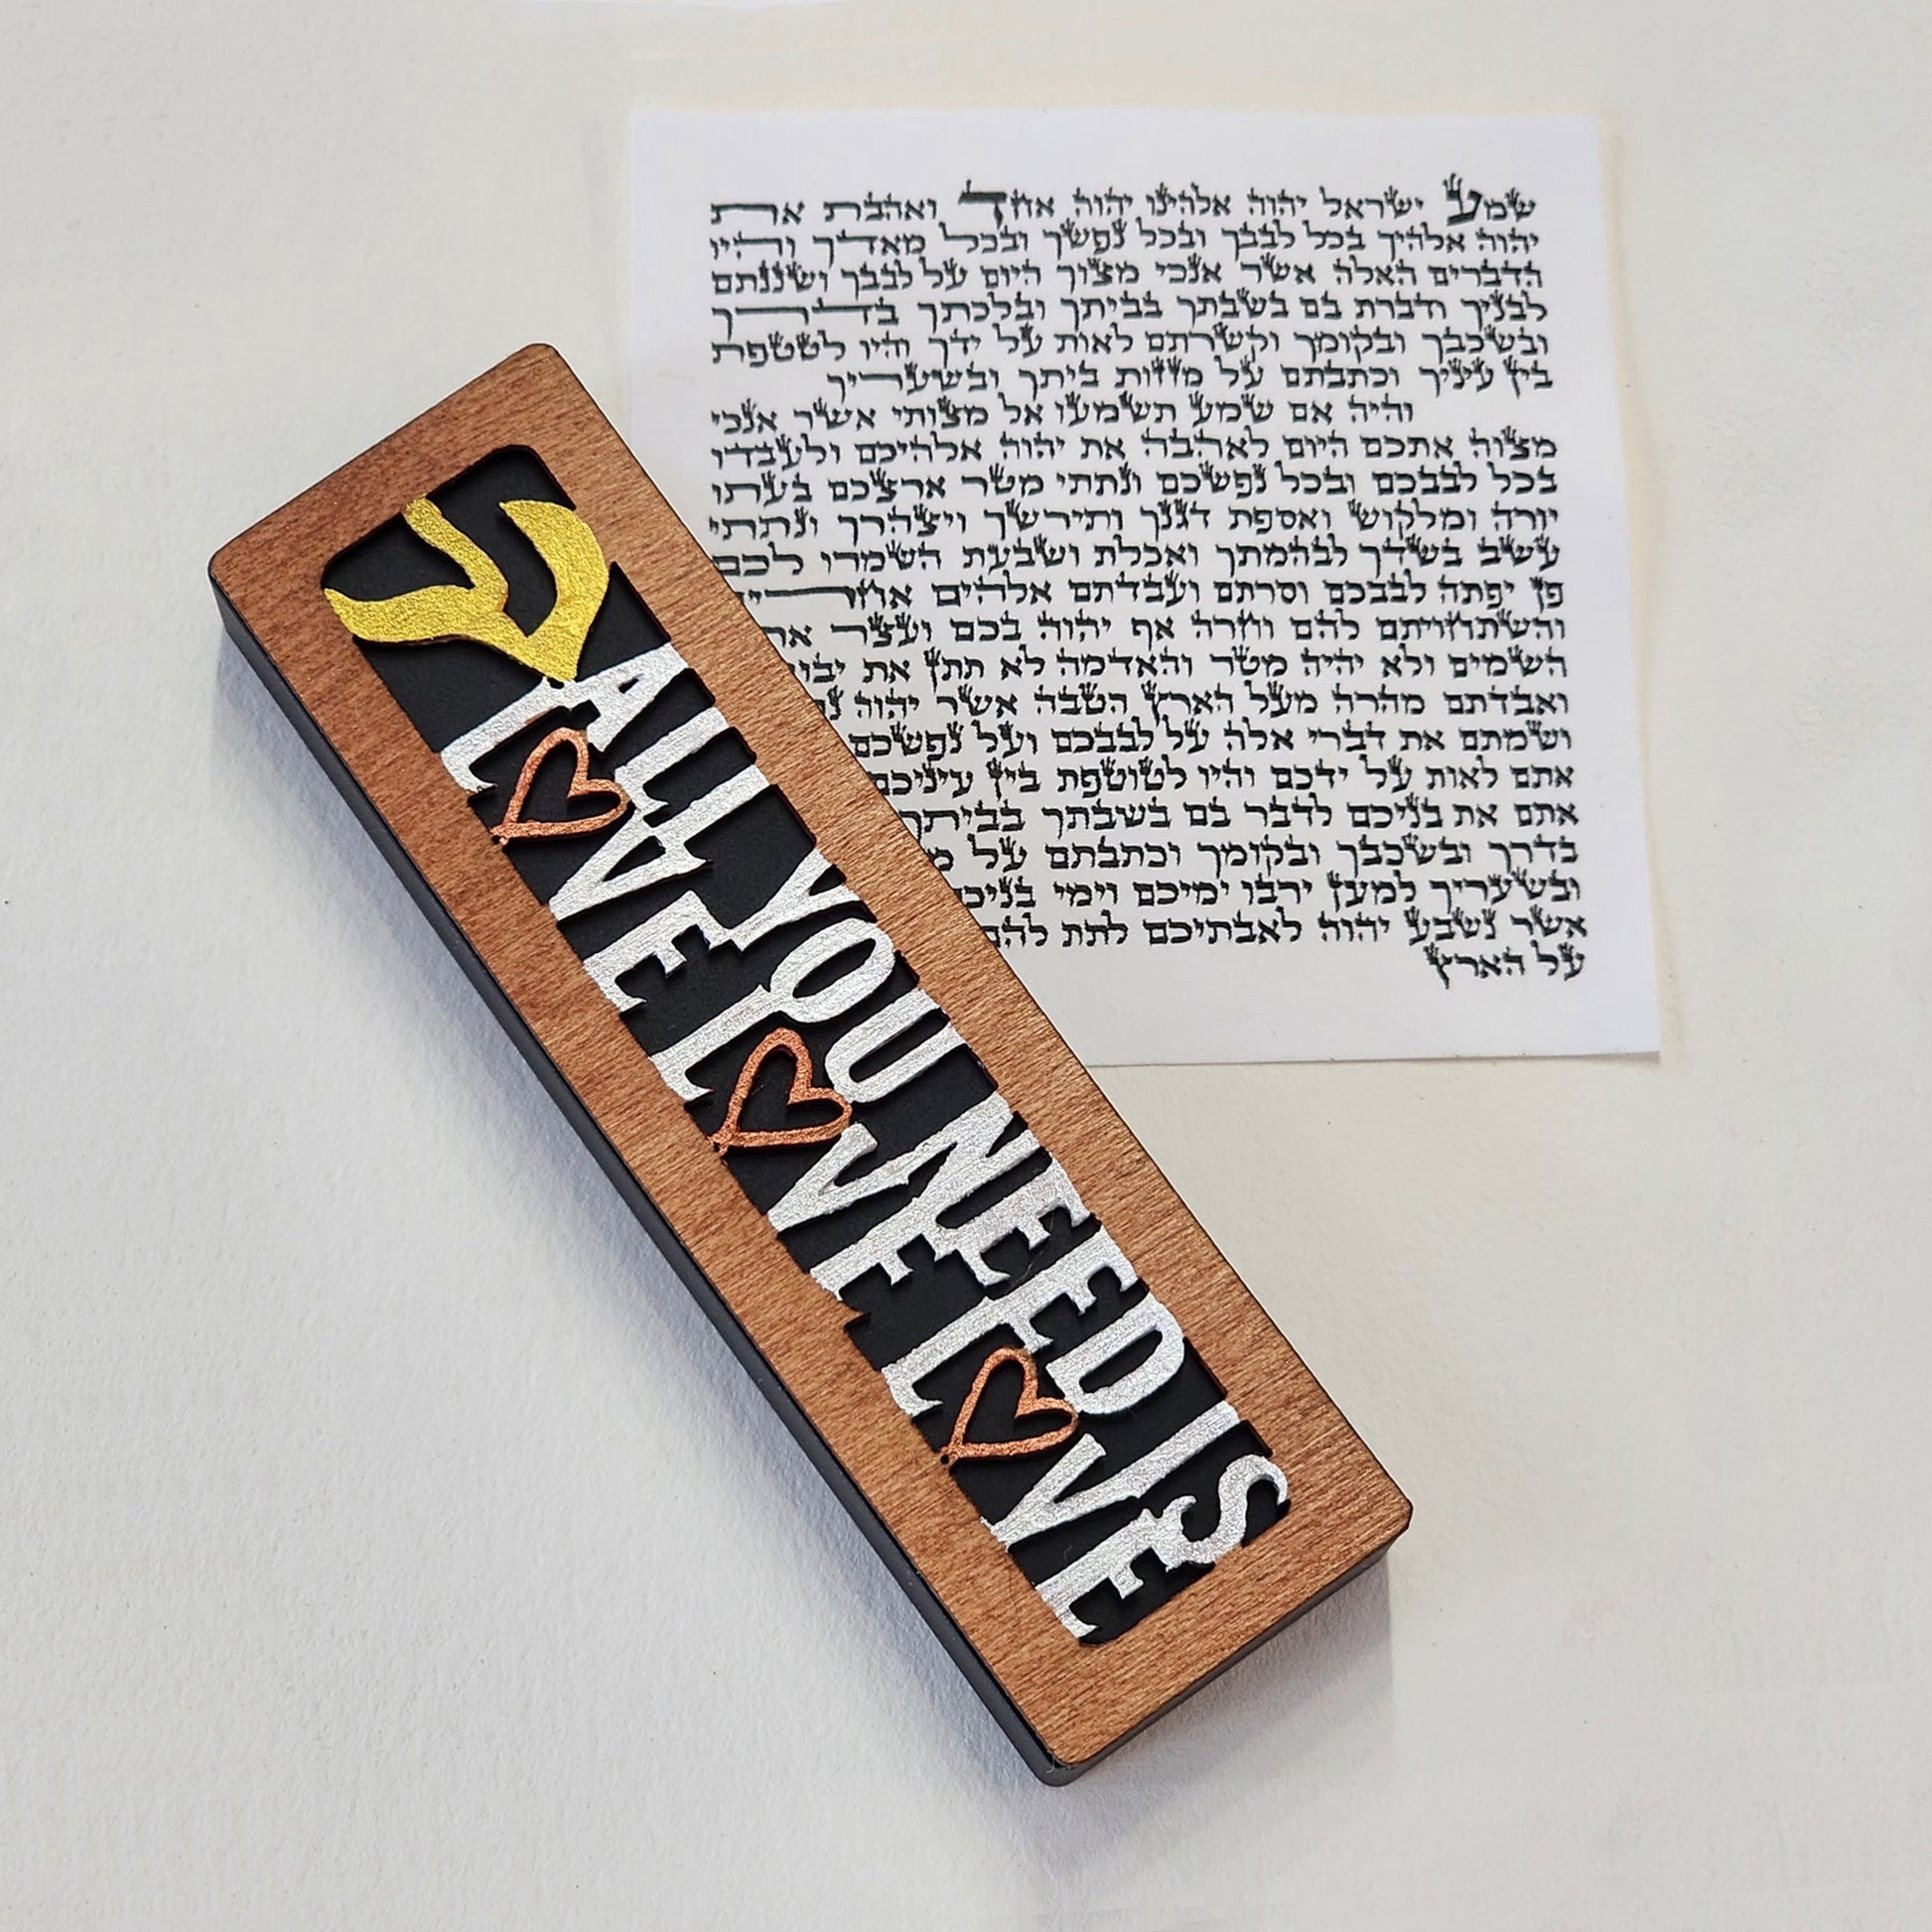 שמע ישראל יהוה אלהינו יהוה אחד ואהבת את
יהוה אלהיך בכל לבבך ובכל נפשך ובכל מאדך והיו
הדברים האלה אשר אנכי מצוך היום על לבבך ושננתם
לבניך ודברת בם בשבתך בביתך ובלכתך בדרך
ובשכבך ובקומך וקשרתם לאות על ידך והיו לטטפת
בין עיניך וכתבתם על מזזות ביתך ובשעריך
והיה אם שמע תשמעו אל מצותי אשר אנכי
מצוה אתכם היום לאהבה את יהוה אלהיכם ולעבדו
בכל לבבכם ובכל נפשכם ונתתי מטר ארצכם בעתו
יורה ומלקוש ואספת דגנך ותירשך ויצהרך ונתתי
עשב בשדך לבהמתך ואכלת ושבעת השמרו לכם
פן יפתה לבבכם וסרתם ועבדתם אלהים
והשתחויתם להם וחרה אף יהוה בכם ועצר
השמים ולא יהיה מטר והאדמה לא תתן את
ואבדתם מהרה מעל הארץ הטבה אשר יהוה
ושמתם את דברי אלה על לבבכם ועל נפשכם
אתם לאות על ידכם והיו לטוטפת בין עיניכם
אתם את בניכם לדבר בם בשבתך בביתך
בדרך ובשכבך ובקומך וכתבתם על
ובשעריך למען ירבו ימיכם וימי
אשר נשבע יהוה לאבתיכם לתת להם
על הארץ
ש
ALL YOU NEED IS
LOVE LOVE LOVE